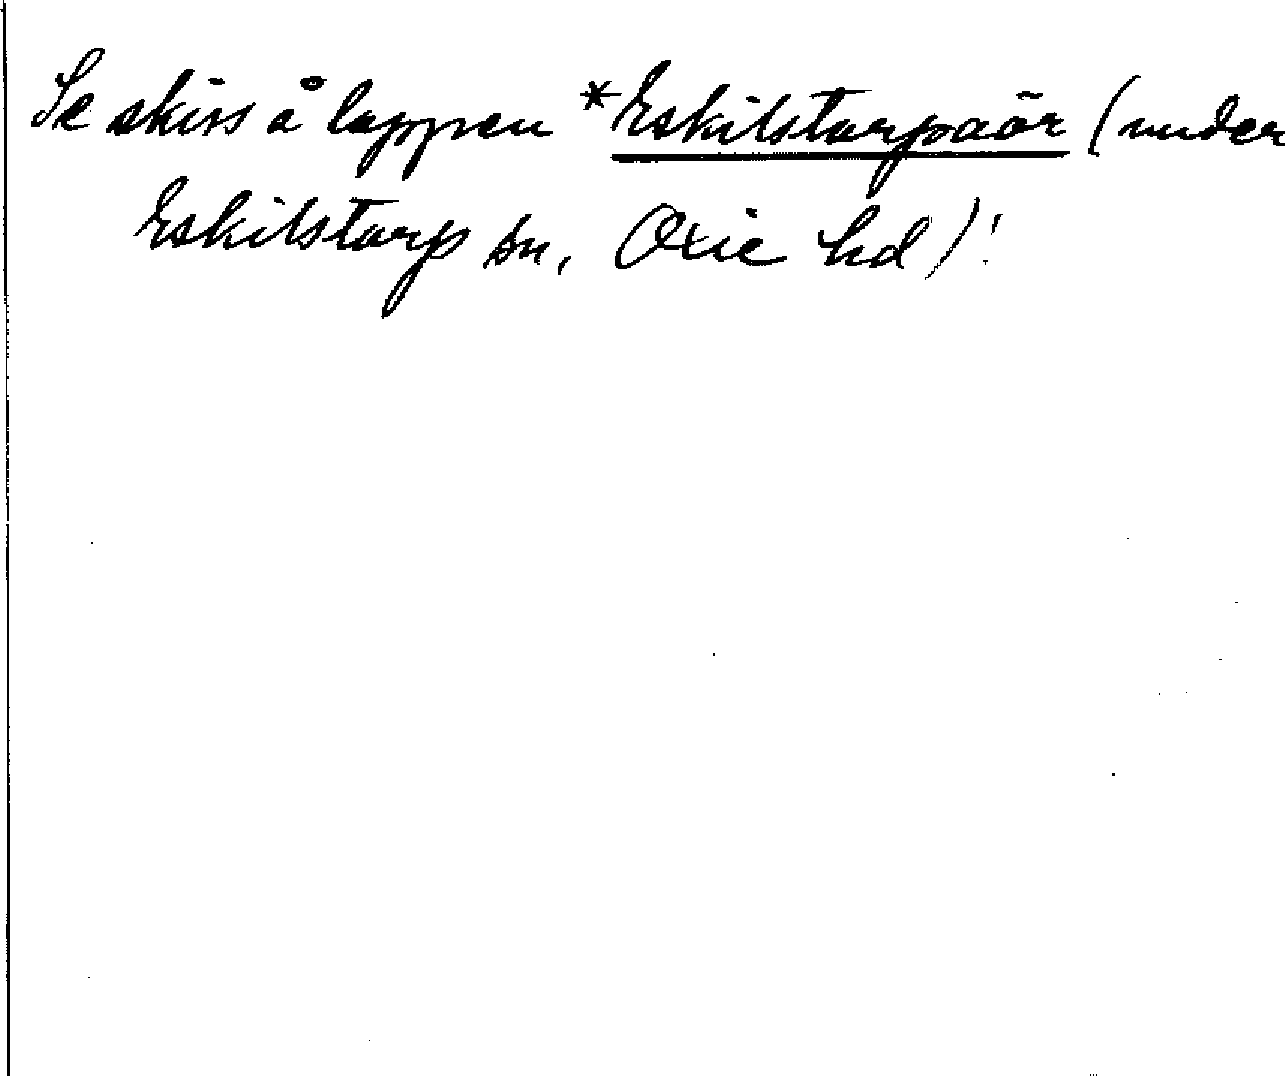 Se skiss å lappen *Eskilstorpaör (under
Eskilstorp sn, Oxie hd)!